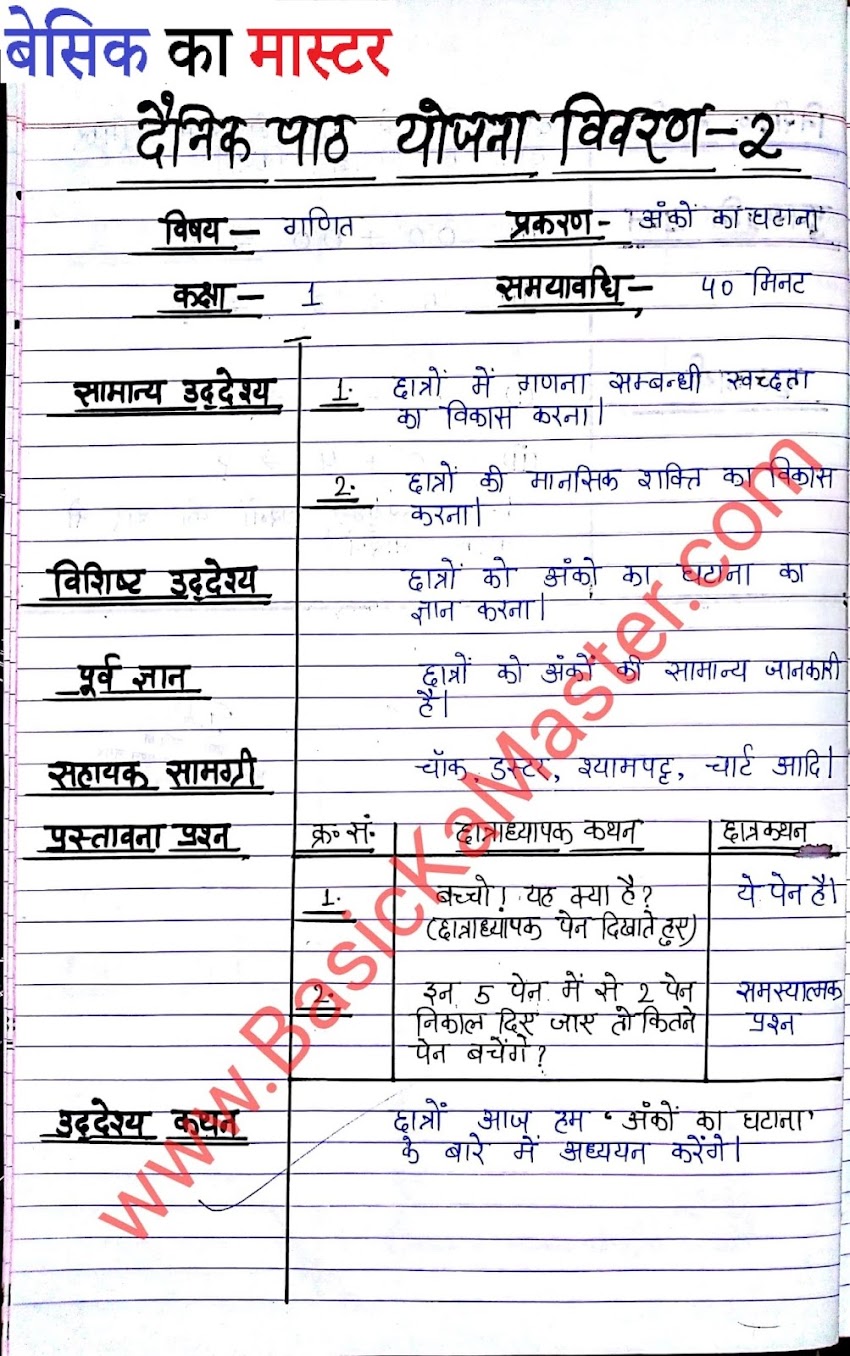 बेसिक का मास्टर
दैनिक पाठ योजना विवरण-2
विषय - गणित प्रकरण - अंकों का घटाना
कक्षा - 1 समयावधि - 40 मिनट
सामान्य उद्देश्य 1. छात्रों में गणना सम्बन्धी स्वच्छता
का विकास करना।
2. छात्रों की मानसिक शक्ति का विकास
करना।
विशिष्ट उद्देश्य छात्रों को अंको का घटाना का
ज्ञान करना।
पूर्व ज्ञान छात्रों को अंकों की सामान्य जानकारी
है।
सहायक सामग्री चॉक, डस्टर, श्यामपट्ट, चार्ट आदि।
प्रस्तावना प्रश्न क्र॰सं॰ छात्राध्यापक कथन छात्रकथन
1. बच्चो! यह क्या है? ये पेन है।
(छात्राध्यापक पेन दिखाते हुए)
2. इन 5 पेन में से 2 पेन समस्यात्मक
निकाल दिए जाए तो कितने प्रश्न
पेन बचेंगे?
उद्देश्य कथन छात्रों आज हम 'अंकों का घटाना'
के बारे में अध्ययन करेंगे।
www.BasicKaMaster.com